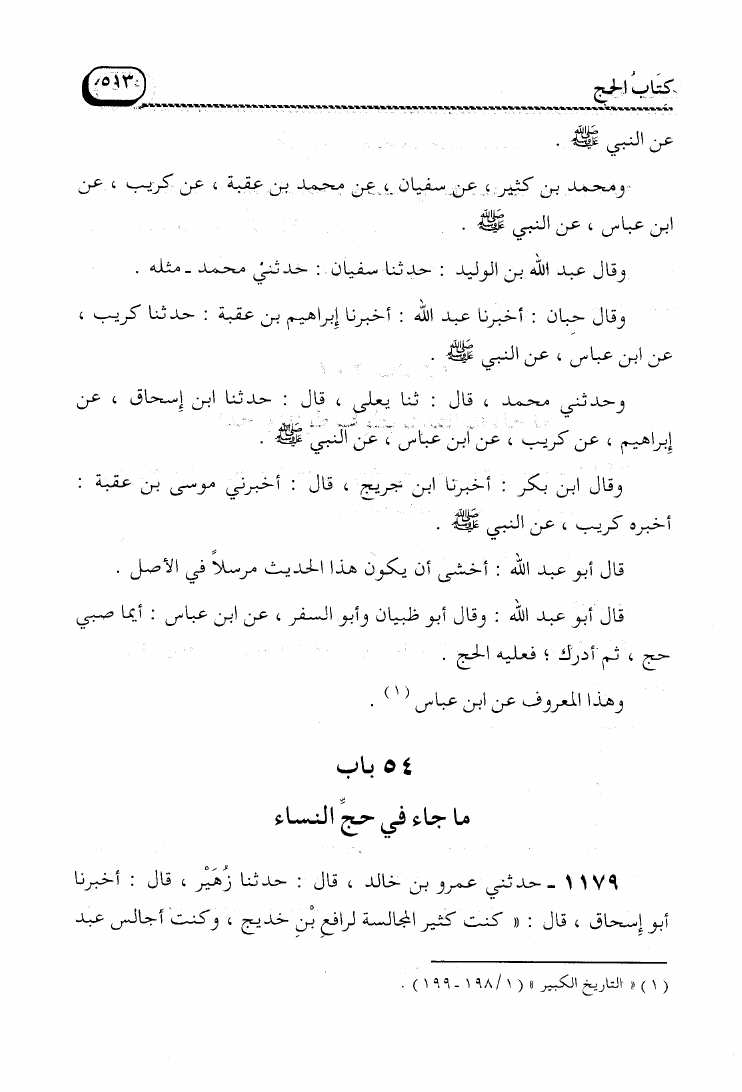 كتاب الحج
٥١٣
عن النبي ﷺ .
ومحمد بن كثير ، عن سفيان ، عن محمد بن عقبة ، عن كريب ، عن
ابن عباس ، عن النبي ﷺ .
وقال عبد الله بن الوليد : حدثنا سفيان : حدثني محمد ـ مثله .
وقال حبان : أخبرنا عبد الله : أخبرنا إبراهيم بن عقبة : حدثنا كريب ،
عن ابن عباس ، عن النبي ﷺ .
وحدثني محمد ، قال : ثنا يعلى ، قال : حدثنا ابن إسحاق ، عن
إبراهيم ، عن كريب ، عن ابن عباس ، عن النبي ﷺ .
وقال ابن بكر : أخبرنا ابن جريج ، قال : أخبرني موسى بن عقبة :
أخبره كريب ، عن النبي ﷺ .
قال أبو عبد الله : أخشى أن يكون هذا الحديث مرسلاً في الأصل .
قال أبو عبد الله : وقال أبو ظبيان وأبو السفر ، عن ابن عباس : أيما صبي
حج ، ثم أدرك ؛ فعليه الحج .
وهذا المعروف عن ابن عباس (١) .
٥٤ باب
ما جاء في حجِّ النساء
١١٧٩ ـ حدثني عمرو بن خالد ، قال : حدثنا زُهَيْر ، قال : أخبرنا
أبو إسحاق ، قال : « كنت كثير المجالسة لرافع بْنِ خديج ، وكنت أجالس عبد
(١) « التاريخ الكبير » (١/ ١٩٨ـ١٩٩) .